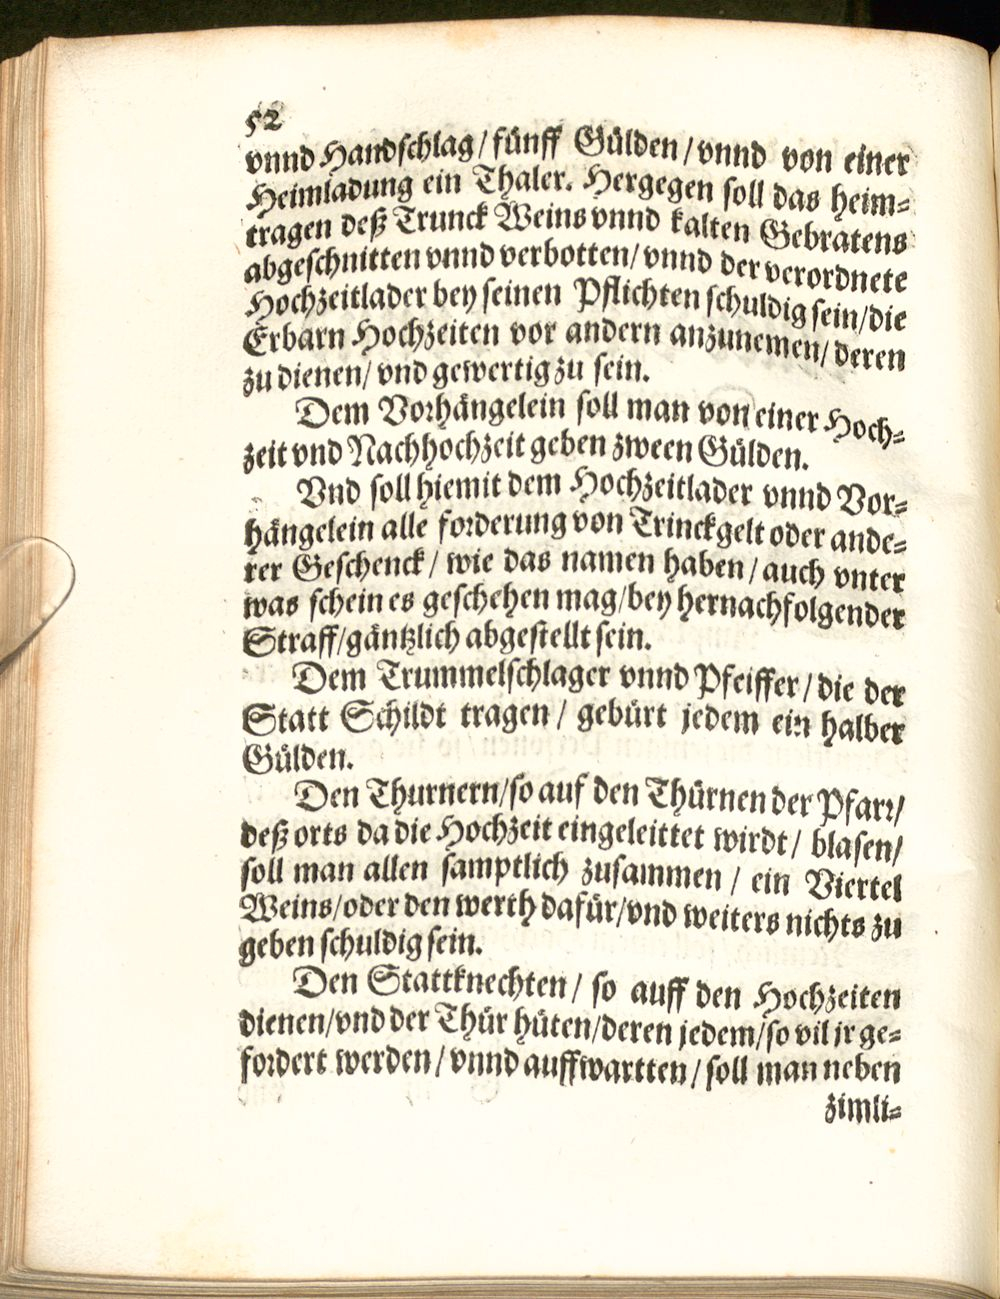 52
vnnd Handschlag/ fünff Gülden/ vnnd von einer
Heimladung ein Thaler. Hergegen soll das heim-
tragen deß Trunck Weins vnnd kalten Gebratens
abgeschnitten vnnd verbotten/ vnnd der verordnete
Hochzeitlader bey seinen Pflichten schuldig sein/ die
Erbarn Hochzeiten vor andern anzunemen/ deren
zu dienen/ vnd gewertig zu sein.
Dem Vorhängelein soll man von einer Hoch-
zeit vnd Nachhochzeit geben zween Gülden.
Vnd soll hiemit dem Hochzeitlader vnnd Vor-
hängelein alle forderung von Trinckgelt oder ande-
rer Geschenck/ wie das namen haben/ auch vnter
was schein es geschehen mag/ bey hernachfolgender
Straff/ gäntzlich abgestellt sein.
Dem Trummelschlager vnnd Pfeiffer/ die der
Statt Schildt tragen/ gebürt jedem ein halber
Gülden.
Den Thurnern/ so auf den Thürnen der Pfarr/
deß orts da die Hochzeit eingeleittet wirdt/ blasen/
soll man allen samptlich zusammen/ ein Viertel
Weins/ oder den werth dafür/ vnd weiters nichts zu
geben schuldig sein.
Den Stattknechten/ so auff den Hochzeiten
dienen/ vnd der Thür hüten/ deren jedem/ so vil jr ge-
fordert werden/ vnnd auffwartten/ soll man neben
zimli-